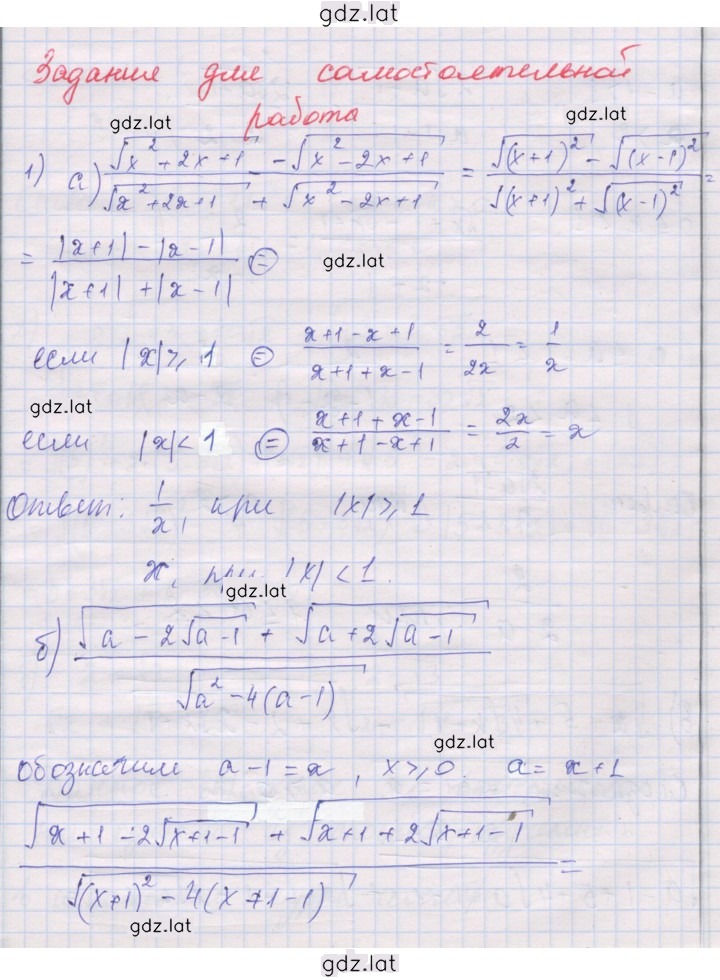 gdz.lat
Задания для самостоятельной
gdz.lat работа gdz.lat
1) а) (√(x² + 2x + 1) - √(x² - 2x + 1)) / (√(x² + 2x + 1) + √(x² - 2x + 1)) = (√(x+1)² - √(x-1)²) / (√(x+1)² + √(x-1)²) =
= (|x+1| - |x-1|) / (|x+1| + |x-1|) ⊜ gdz.lat
если |x| ≥ 1 ⊜ (x+1-x+1) / (x+1+x-1) = 2 / 2x = 1 / x
gdz.lat
если |x| < 1 ⊜ (x+1+x-1) / (x+1-x+1) = 2x / 2 = x
Ответ: 1 / x, при |x| ≥ 1
x, при |x| < 1.
gdz.lat
б) (√(a - 2√(a-1)) + √(a + 2√(a-1))) / √(a² - 4(a-1))
gdz.lat
обозначим a-1 = x, x ≥ 0. a = x+1
(√(x+1-2√(x+1-1)) + √(x+1+2√(x+1-1))) / √((x+1)² - 4(x+1-1)) =
gdz.lat
gdz.lat